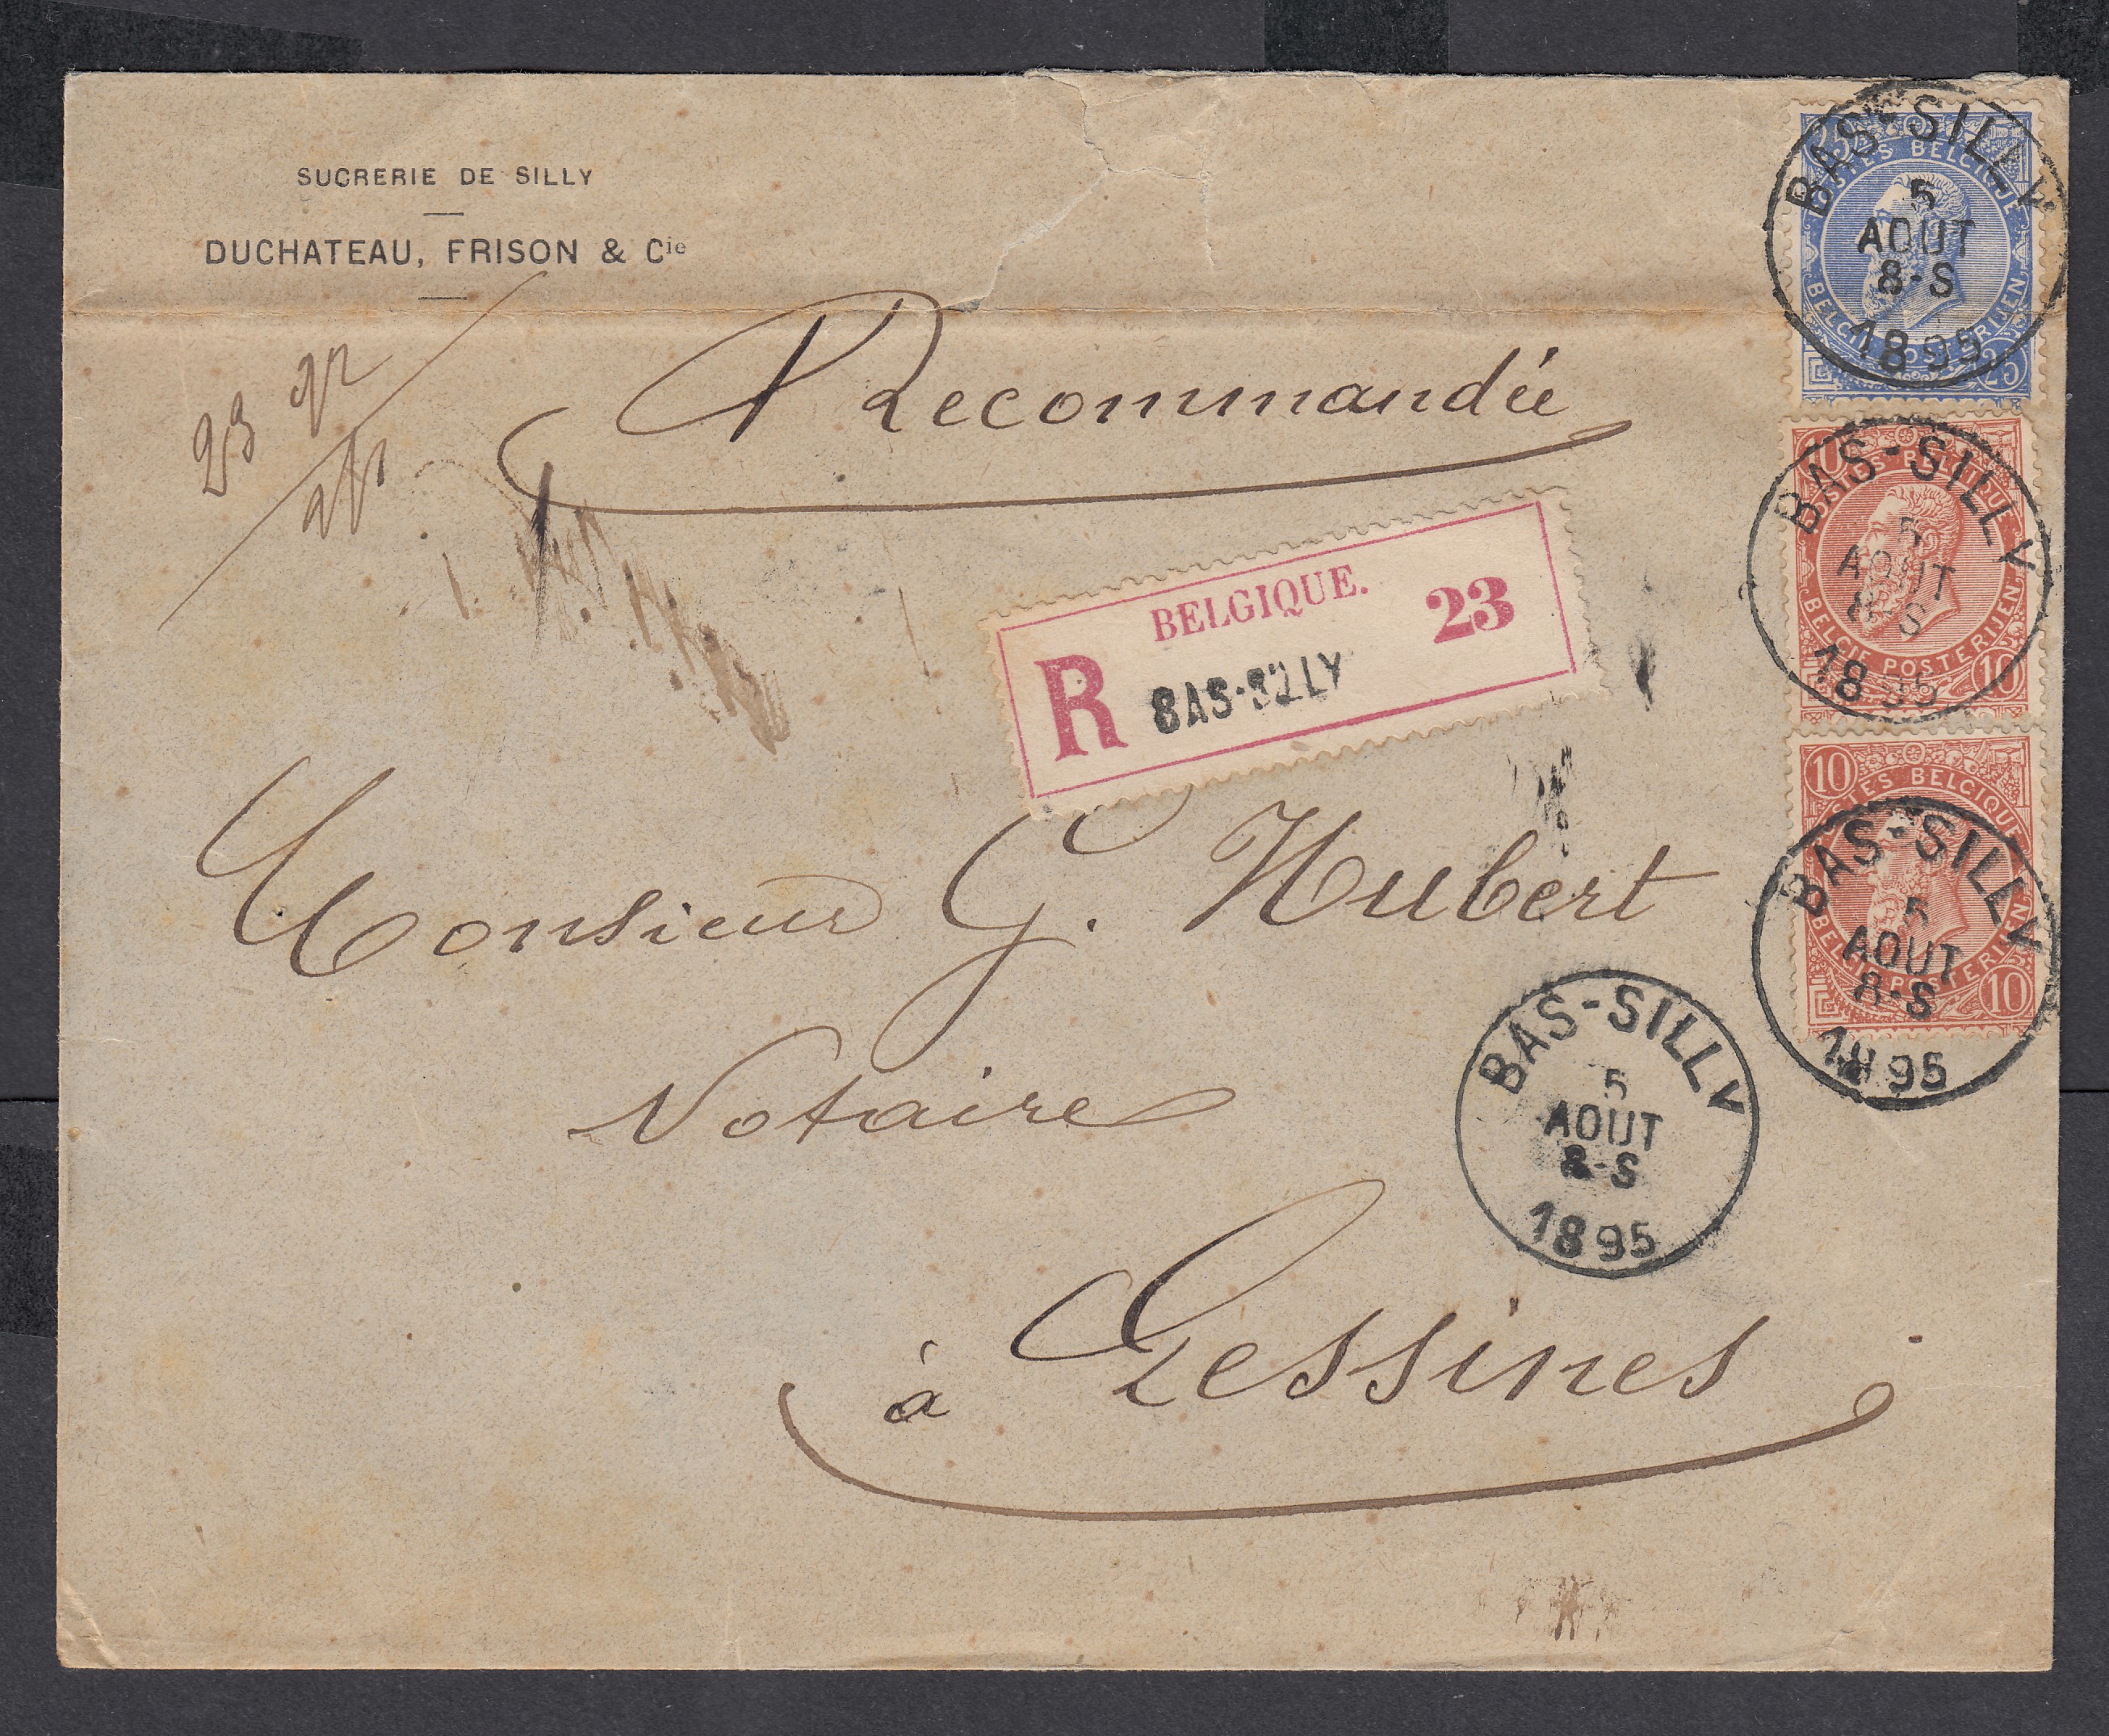 SUCRERIE DE SILLY
DUCHATEAU, FRISON & Cie
23 gr
Recommandée
BELGIQUE. 23
R BAS-SILLY
Monsieur G. Hubert
Notaire
à Lessines
BAS-SILLY
5
AOUT
8-S
1895
25
POSTES BELGIQUE
BELGIE POSTERIJEN
25
BAS-SILLY
5
AOUT
8-S
1895
10
POSTES BELGIQUE
BELGIE POSTERIJEN
10
BAS-SILLY
5
AOUT
8-S
1895
10
POSTES BELGIQUE
BELGIE POSTERIJEN
10
BAS-SILLY
5
AOUT
8-S
1895